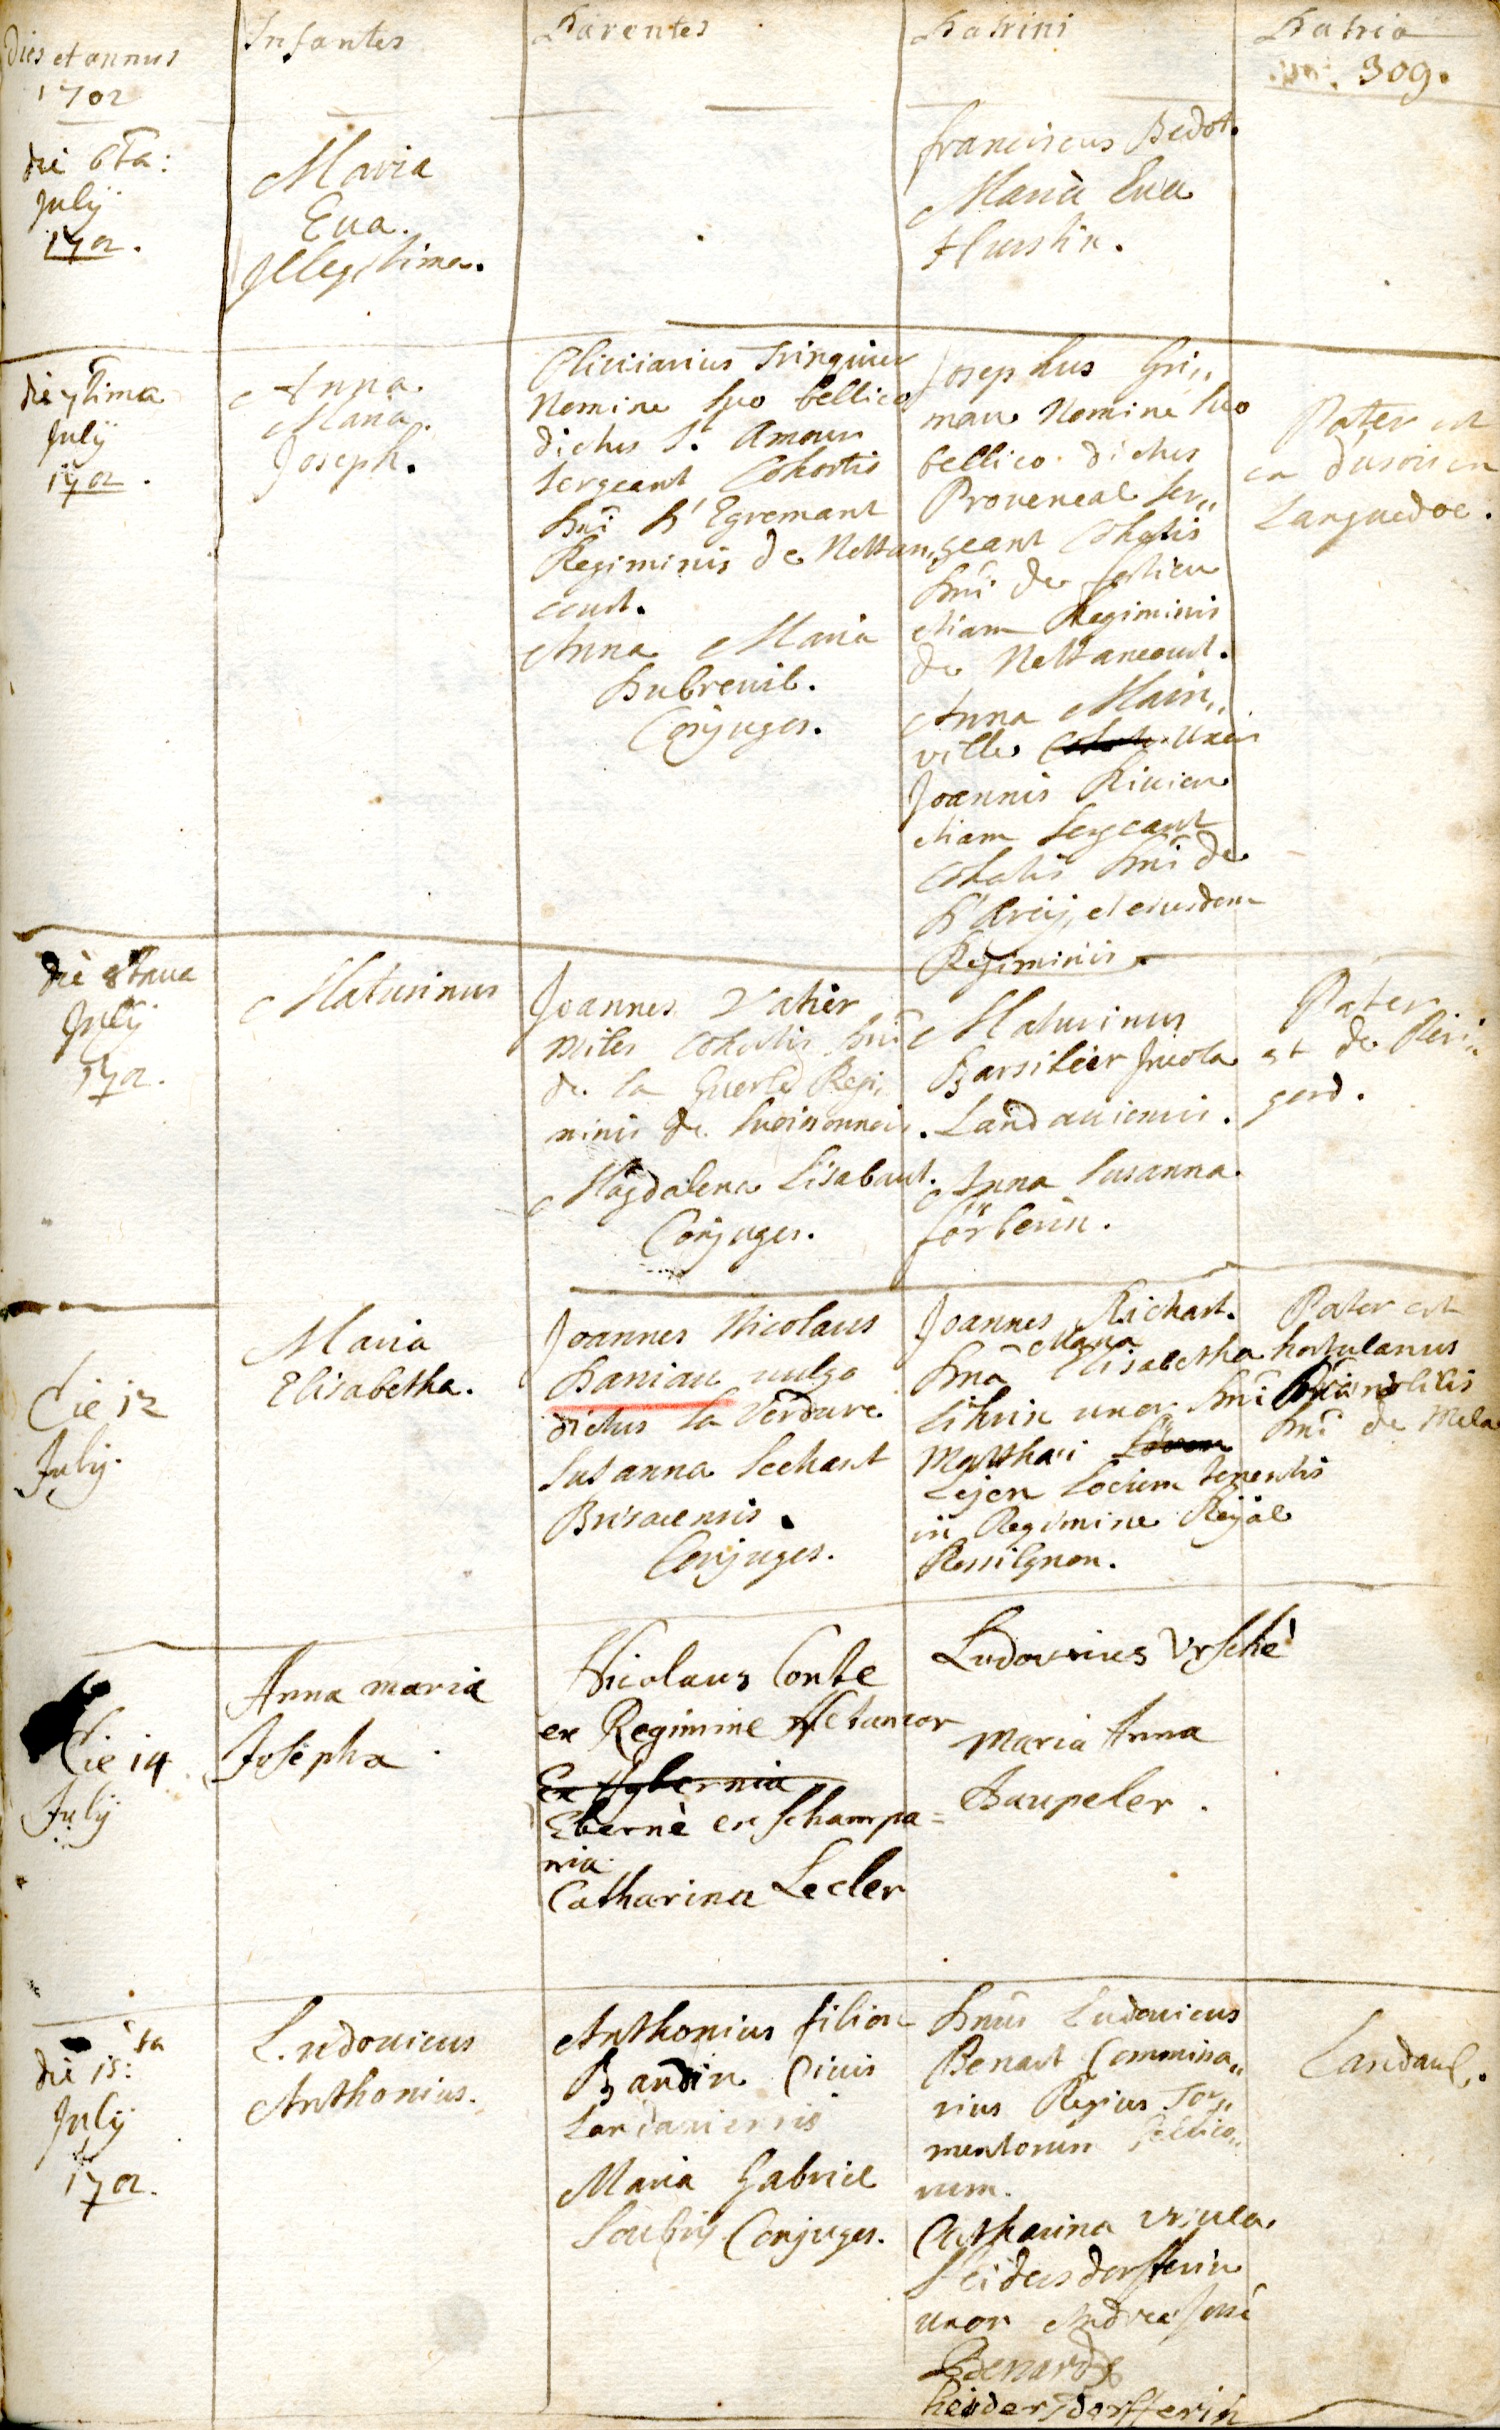 Dies et annus
1702
Infantes
Parentes
Patrini
Patria
309.
die 6ta:
July
1702.
Maria
Eua.
Illegitima.
franciscus Bedot.
Maria Eua
die 7tima
July
1702.
Anna.
Maria.
Joseph.
Nomine suo bellico
dictus S. Amour
sergeant Cohortis
Dni D'Egremant
Regiminis de Nettan,,
court.
Anna Maria
Dubreuil.
Conjuges.
Josephus Gri,,
mau Nomine suo
bellico dictus
Prouencal ser,,
geant Cohortis
Dni de
etiam Regiminis
de Nettancourt.
Anna Main,,
ville uxor
Joannis Riuier
etiam sergeant
Cohortis Dni de
D'Arcij, et eiusdem
Regiminis.
Pater est
Languedoc.
die 8taua
July
1702.
Maturinus
Joannes Vatier
miles Cohortis Dni
de la Guerle Regi,,
minis de Soeissonnois.
Magdalena Lisabaut.
Conjuges.
Maturinus
Barsilier Incola
Landauiensis.
Anna Susanna
förterin.
Pater
est de Peri,,
gord.
die 12
July.
Maria
Elisabetha.
Joannes Nicolaus
Daniau uulgo
dictus la Verdure
Susanna Sechaut
Brisacensis.
Conjuges.
Joannes Richart.
Maria
Dna Elisabetha
uxor Dni
Matthaei
Lejen Locum tenentis
in Regimine Rojal
Rossilgnon.
Pater est
hortulanus
nobilis
Dni de Mela
die 14
July
Anna maria
Josepha
Nicolaus Conte
ex Regimine Netancor
Ex Hybernia
Ebernè ex schampa=
nia.
Catharina Lecler
Ludouicus Vrschè
Maria Anna
Baupeler.
die 15:ta
July
1702.
Ludouicus
Anthonius.
Anthonius filion
Bandin Ciuis
Landauiensis
Maria Gabriel
Conjuges.
Dnus Ludouicus
Benart Commissa,,
rius Regius Tor,,
mentorum bellico,,
rum.
Catharina Vrsula
Heidersdorfferin
uxor Andreae
Benard
heidersdorfferin
Landau.